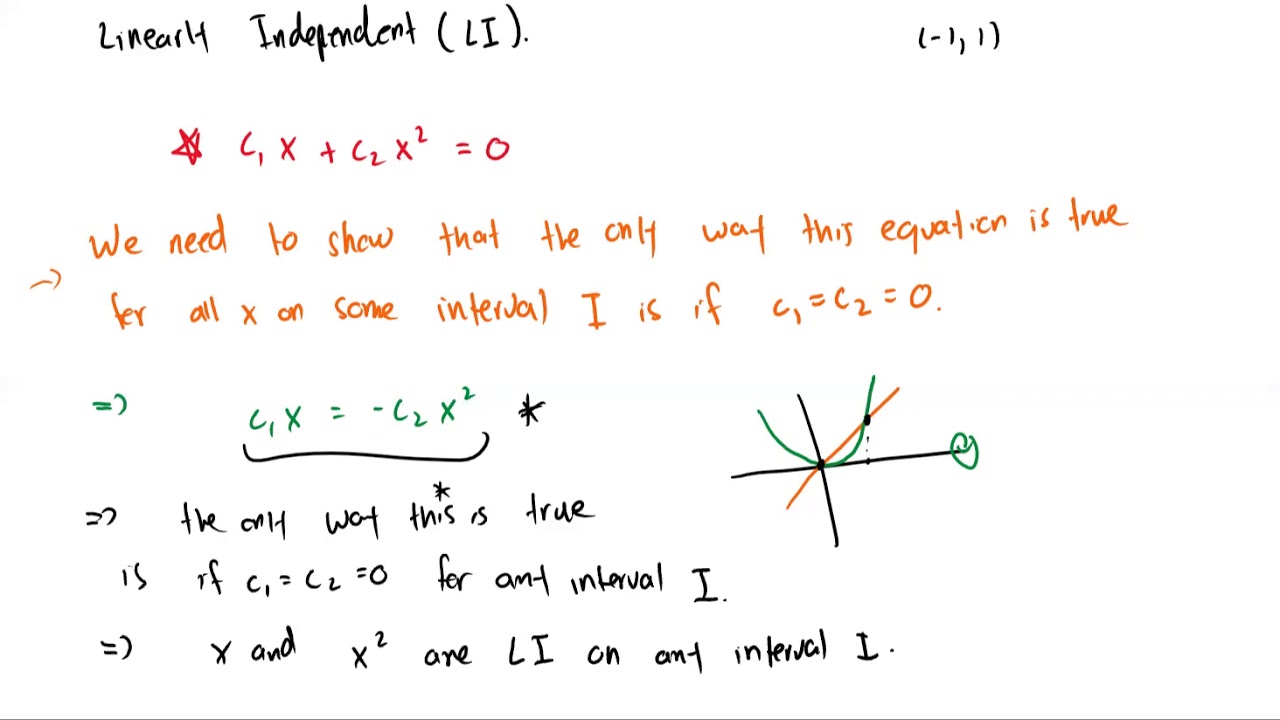 Linearly Independent (LI).
(-1, 1)
☆ c₁ x + c₂ x² = 0
We need to show that the only way this equation is true
→ for all x on some interval I is if c₁ = c₂ = 0.
⇒ c₁ x = -c₂ x² *
⇒ the only way this* is true
is if c₁ = c₂ = 0 for any interval I.
⇒ x and x² are LI on any interval I.